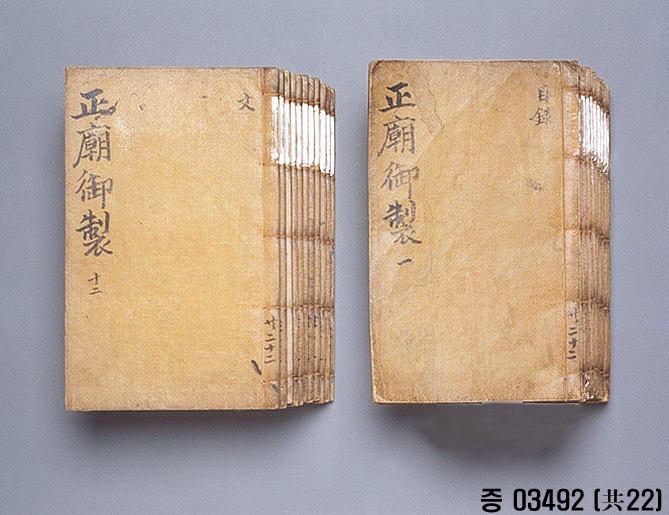 正廟御製
十二
文
共二十二
正廟御製
一
目錄
共二十二
증 03492 (共22)